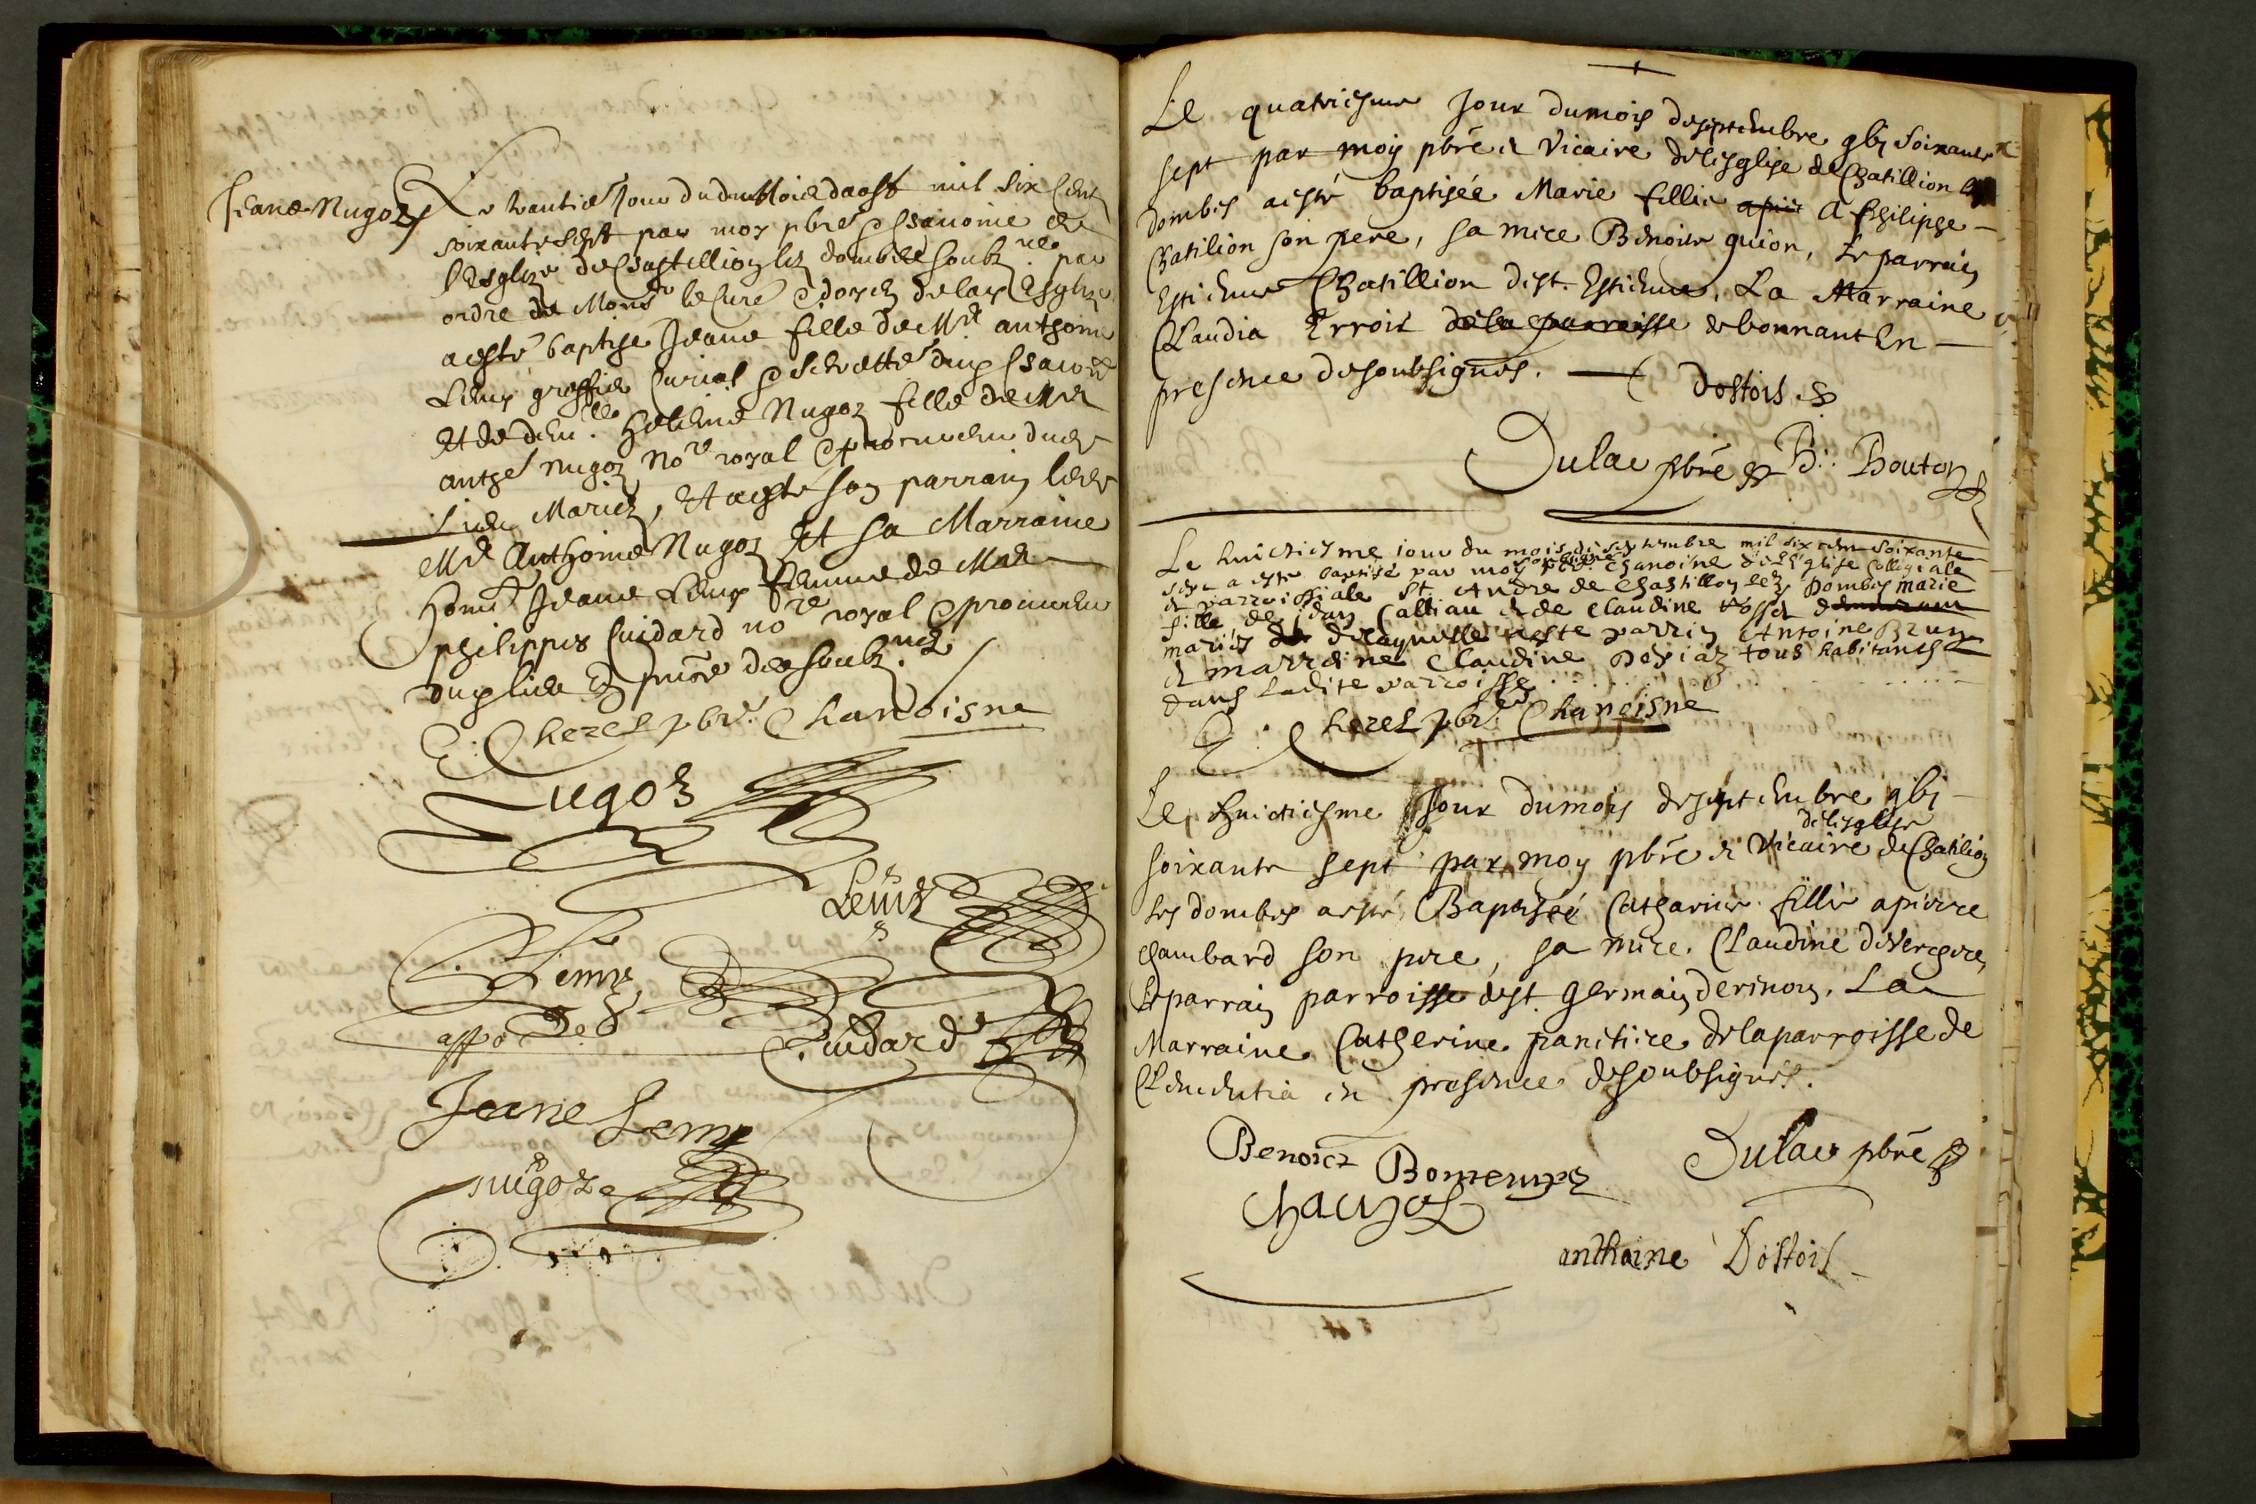 Jeane Nugoz
Le trantie Jour du du Moie daost mil six Cent
soixante sept par moy pbre & Chanoine de
lEsglize de Chastillion les dombes soubz.ne par
ordre de Mons.r le Curé & doyen de lad Esglize
a esté baptise Jeane fille de M.r anthoine
Lemp greffier Curial &
Et de dem.lle Helene Nugoz fille de M.r
anthe Nugoz No.re royal & procureur dud
Lieu Mariez, Et a esté son parrain led
M.r Anthoine Nugoz Et sa Marraine
Hon.te Jeane Lemp femme de M.r
philippes Cuidard no.re royal & procureur
dud lieu En pnce des soubz.nez
E: Cherel pbr. Chanoisne
Nugoz
Lemp
Lemp
Cuidard
Jeane Lemp
nugoz
Le quatriesme Jour du mois de septembre gbj soixante
sept par moy pbre & Vicaire de lesglise de Chatillion les
dombes a esté baptisée Marie fillie a philippe
Chatilion son pere, sa mere Benoite guion, Le parrain
Estienne Chatillion de st. Estienne, La Marraine
Claudia Erroit de la parroisse de bonnant En
presence des soubsignes. Dostois
Dulac pbre B: Bouton
Le huictiesme iour du mois de septembre mil six cens soixante
soubsigné
sept a este baptise par moy pbre chanoine de l'Eglise Collegiale
& parroissiale St. Andre de Chastillon lez Dombes marie
fille de Jean Callian & de Claudine
mariés de laquelle a este parrin Antoine Brun
& marreine Claudine Depiaz tous habitants
dans ladite parroisse
E: Cherel pbr. Chanoisne
Le huictiesme Jour du mois de septembre gbj
de lesglise
soixante sept par moy pbre & Vicaire de Chatilion
les dombes a esté Baptisée Catharine fillie a pierre
chambard son pere, sa mere Claudine de Vergere,
Le parrain parroisse de st. Germain de rinon. La
Marraine Catherine panetiere de la parroisse de
Clemencia en presence des soubsignés.
Benoict Bontemps Dulac pbre
Chauzol
anthoine Dostois